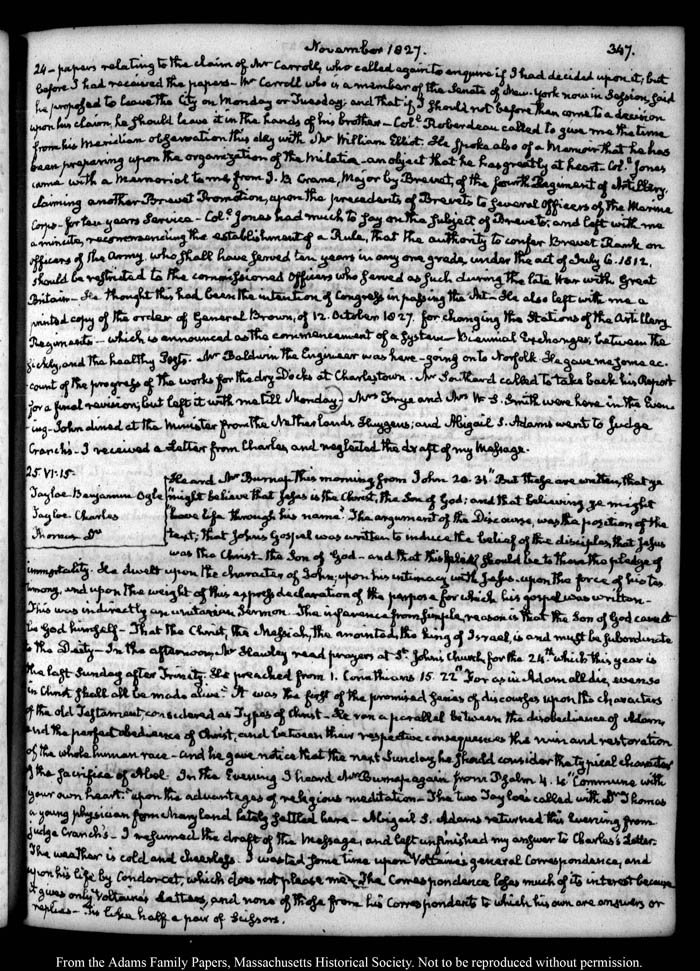 November 1827.
347.
24 - papers relating to the claim of Mr Carroll, who called again to enquire if I had decided upon it, but
before I had received the papers - Mr Carroll who is a member of the Senate of New-York now in Session, said
he proposed to leave the City on Monday or Tuesday, and that if I should not before then come to a decision
upon his claim he should leave it in the hands of his brother - Coll. Roberdeau called to give me the time
from his Meridian observation this day with Mr William Elliot. He spoke also of a Memoir that he has
been preparing upon the organization of the Militia - an object that he has greatly at heart - Coll. Jones
came with a Memorial to me from I. B Crane, Major by Brevet, of the fourth Regiment of Artillery,
claiming another Brevet Promotion, upon the precedents of Brevets to several officers of the Marine
Corps - for ten years service - Coll. Jones had much to say on the subject of Brevets; and left with me
a minute, recommending the establishment of a Rule, that the authority to confer Brevet Rank on
officers of the Army, who shall have served ten years in any one grade, under the act of July 6. 1812.
should be restricted to the commissioned officers who served as such during the late War with Great
Britain - He thought this had been the intention of Congress in passing the Act - He also left with me a
printed copy of the order of General Brown, of 12. October 1827. for changing the Stations of the Artillery
Regiments - which is announced as the commencement of a system Biennial Exchanges, between the
sickly, and the healthy Posts. Mr Baldwin the Engineer was here - going on to Norfolk. He gave me some ac-
count of the progress of the works for the dry Docks at Charlestown. Mr Southard called to take back his Report
for a final revision; but left it with me till Monday. Mrs Frye and Mrs W. S. Smith were here in the Even-
ing - John dined at the Minister from the Netherlands Huygens; and Abigail S. Adams went to Judge
Cranch's - I received a Letter from Charles, and neglected the draft of my Message.
25. VI:15.
Tayloe Benjamin Ogle
Tayloe Charles
Thomas Dr
Heard Mr Burnap this morning from John 20. 31 "But these are written, that ye
"might believe that Jesus is the Christ, the Son of God; and that believing ye might
"have life through his name". The argument of the Discourse, was the position of the
text, that John's Gospel was written to induce the belief of the disciples, that Jesus
was the Christ the Son of God - and that this belief should be to them the pledge of
immortality. He dwelt upon the character of John; upon his intimacy with Jesus - upon the force of his tes-
timony, and upon the weight of this express declaration of the purpose for which his gospel was written -
This was indirectly an unitarian Sermon. The inference from simple reason is that the Son of God cannot
be God himself - That the Christ, the Messiah, the anointed, the King of Israel, is and must be subordinate
to the Deity - In the afternoon Mr Hawley read prayers at St John's Church, for the 24th which this year is
the last Sunday after Trinity. He preached from 1. Corinthians 15. 22 "For as in Adam all die, even so
in Christ shall all be made alive" - It was the first of the promised series of discourses upon the characters
of the old Testament, considered as Types of Christ - He ran a parallel between the disobedience of Adam,
and the perfect obedience of Christ, and between their respective consequences the ruin and restoration
of the whole human race - and he gave notice that the next Sunday he should consider the typical character
of the sacrifice of Abel - In the Evening I heard Mr Burnap again from Psalm 4. "Commune with
your own heart." upon the advantages of religious meditation - The two Tayloe's called with Dr Thomas
a young physician from Maryland lately settled here - Abigail S. Adams returned this Evening from
Judge Cranch's - I resumed the draft of the Message, and left unfinished my answer to Charles's Letter.
The weather is cold and cheerless. I wasted some time upon Voltaire's general Correspondence, and
upon his life by Condorcet, which does not please me. The Correspondence loses much of its interest because
it gives only Voltaire's Letters, and none of those from his Correspondents to which his own are answers or
replies - Tis like half a pair of Scissors.
From the Adams Family Papers, Massachusetts Historical Society. Not to be reproduced without permission.